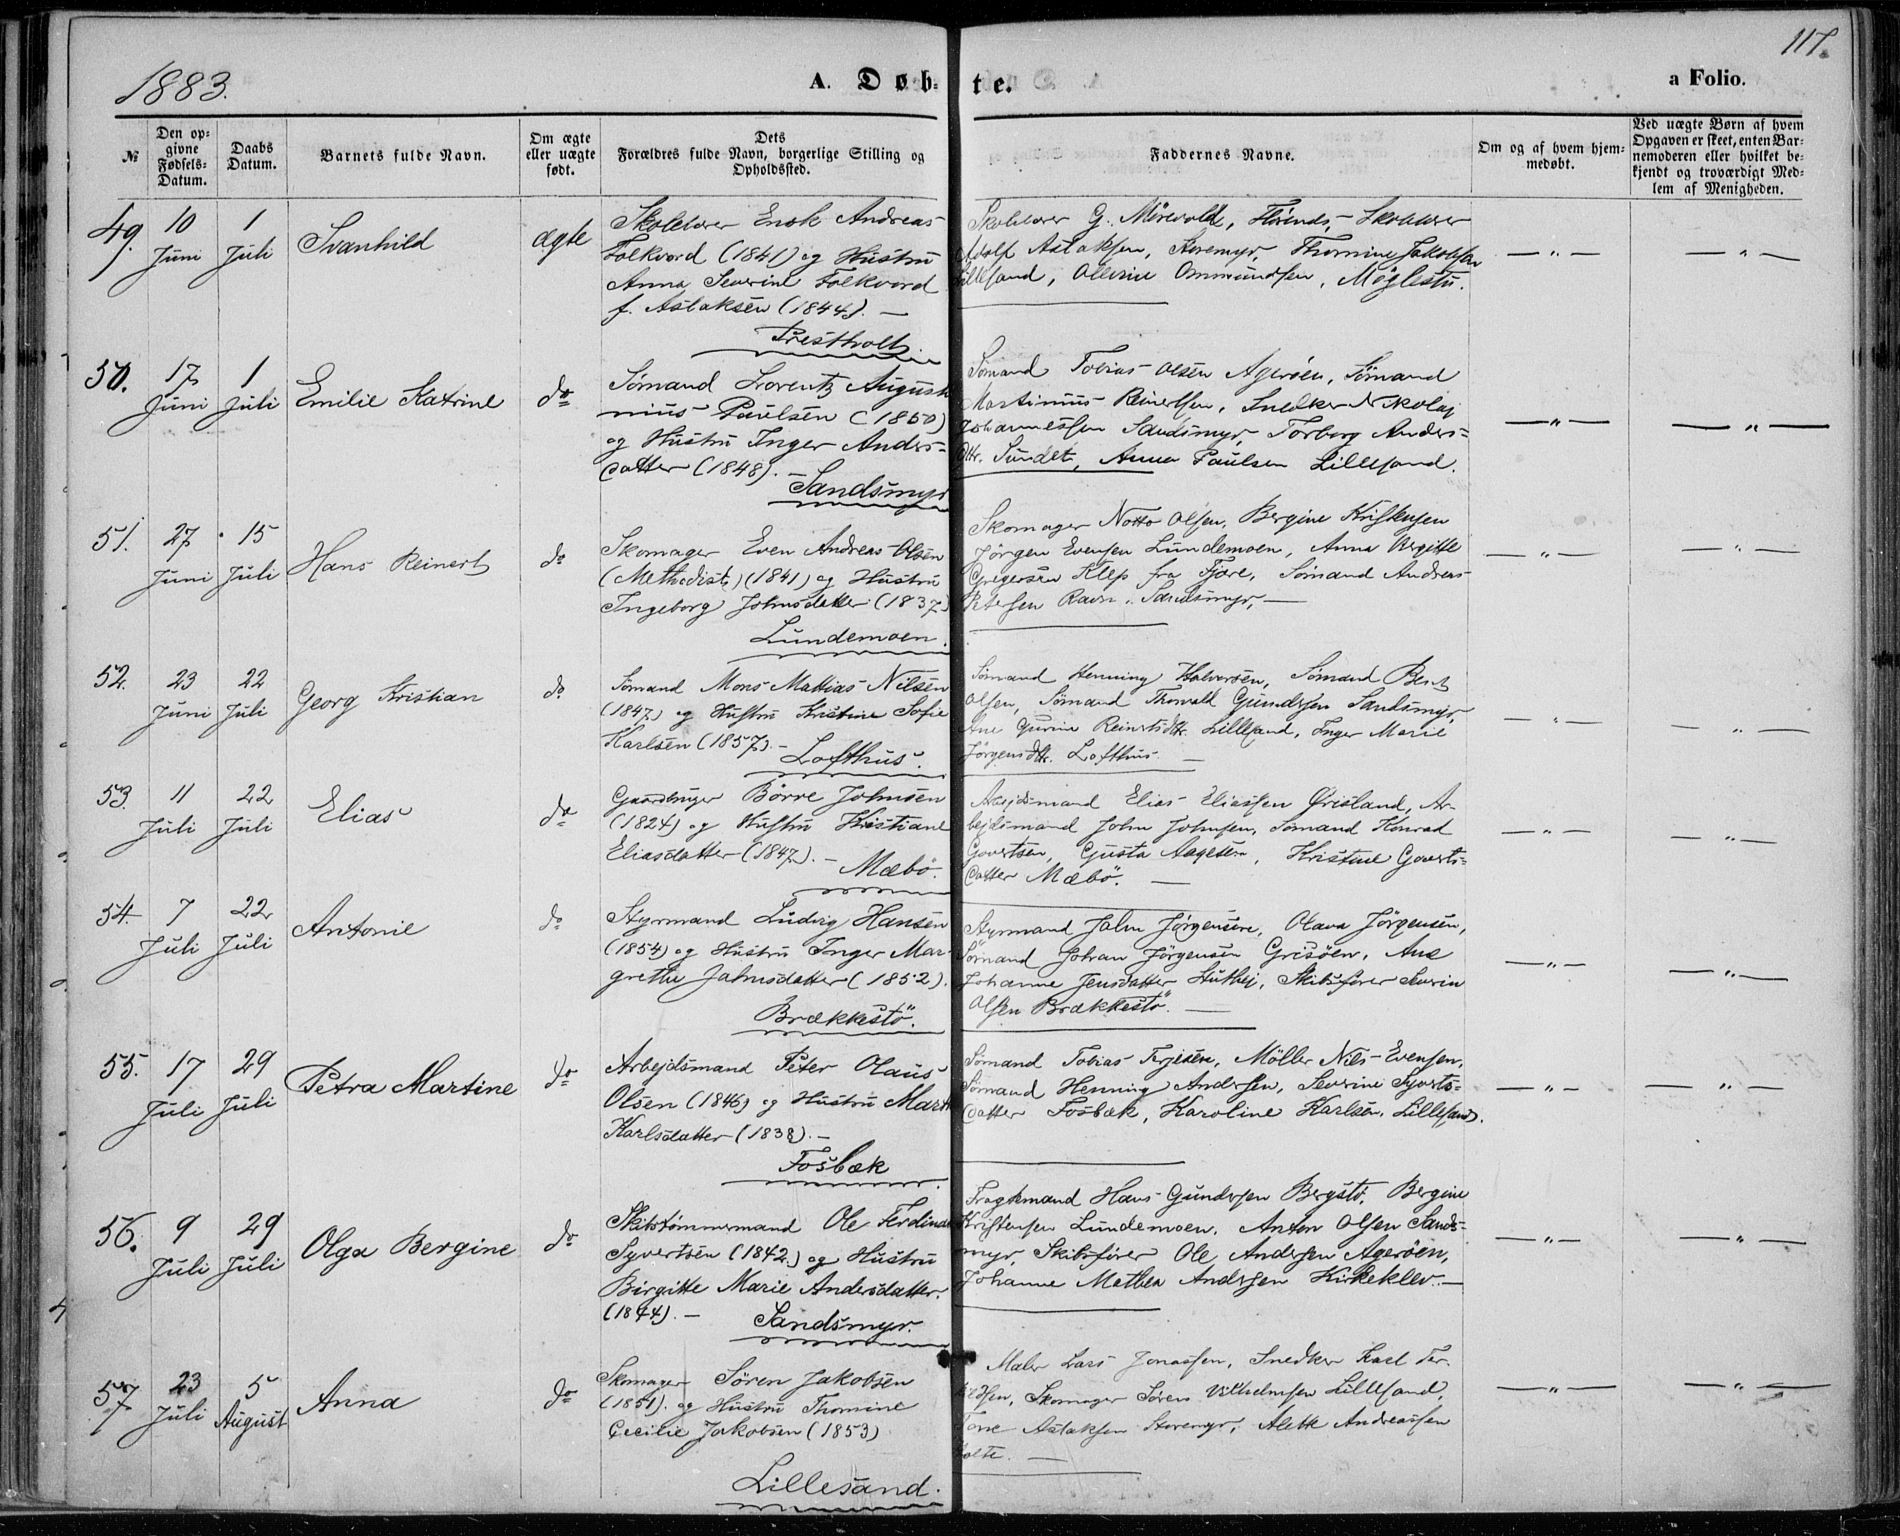 1883.
A. Døbte.
a Folio.
117.
№
Den opgivne Fødsels-Datum.
Daabs Datum.
Barnets fulde Navn.
Om ægte eller uægte født.
Dets Forældres fulde Navn, borgerlige Stilling og Opholdssted.
Faddernes Navne.
Om og af hvem hjemmedøbt.
Ved uægte Børn af hvem Opgaven er skeet, enten Barnemoderen eller hvilket bekjendt og troværdigt Medlem af Menigheden.
49. 10 Juni 1 Juli Svanhild ægte
Skolelærer Enok Andreas
Folkvord (1841) og Hustru
Anna Severine Folkvord
f. Aslaksen (1844). —
Prestholt
Skolelærer G. Mørevold, Skolelærer
Adolf Aslaksen, Storemyr, Thomine Jakobsen
Lillesand, Olevine Ommundsen, Møglestu.
— " — — " —
50. 17 Juni 1 Juli Emilie Katrine do
Sømand Lorentz August
nius Paulsen (1850)
og Hustru Inger Anders-
datter (1848). —
Sandsmyr
Sømand Tobias Olsen Agerøen, Sømand
Martinius Reinertsen, Snedker Nikolaj
Johannessen Sandsmyr, Torborg Anders-
dtr. Sundet, Anna Paulsen Lillesand.
— " — — " —
51. 27 Juni 15 Juli Hans Reinert do
Skomager Even Andreas Olsen
(Methodist) (1841) og Hustru
Ingeborg Johnsdatter (1837)
Lundemoen.
Skomager Notto Olsen, Bergine Kristensen
Jørgen Evensen Lundemoen, Anna Birgitte
Gregersen Klep fra Fjære, Sømand Andreas
Petersen Ravn. Sandsmyr, —
— " — — " —
52. 23 Juni 22 Juli Georg Kristian do
Sømand Mons Mattias Nilsen
(1847) og Hustru Kristine Sofie
Karlsen (1857). —
Lofthus.
Sømand Henning Halvorsen, Sømand Bent
Olsen, Sømand Thorvald Gundersen Sandsmyr,
Ane Gurine Reinertsdtr. Lillesand, Inger Marie
Jørgensdtr. Lofthus —
— " — — " —
53. 11 Juli 22 Juli Elias do
Gaardbruger Börre Johnsen
(1824) og Hustru Kristiane
Eliasdatter (1847). —
Mæbö.
Arbejdsmand Elias Eliassen Øvisland, Ar-
bejdsmand John Johnsen, Sømand Konrad
Govertsen, Gusta Aagesen, Kristine Goverts-
datter Mæbö. —
— " — — " —
54. 7 Juli 22 Juli Antonie do
Styrmand Ludvig Hansen
(1854) og Hustru Inger Mar-
grethe Jahnsdatter (1852).
Brækkestö.
Styrmand Jahn Jørgensen, Olava Jørgensen,
Sømand Johan Jørgensen Grisöen, Ane
Johanne Jensdatter, Skibsfører Severin
Olsen Brækkestö. —
— " — — " —
55. 17 Juli 29 Juli Petra Martine do
Arbejdsmand Peter Olaus
Olsen (1846) og Hustru Marte
Karlsdatter (1838). —
Fosbæk
Sømand Tobias Terjesen, Möller Nils Evensen,
Sømand Henning Andersen, Severine Syverts-
datter Fosbæk, Karoline Karlsen, Lillesand.
— " — — " —
56. 9 Juli 29 Juli Olga Bergine do
Skibstømmermand Ole Ferdinand
Syvertsen (1842) og Hustru
Birgitte Marie Andersdatter.
(1844). —
Sandsmyr.
Fragtemand Hans Gundersen Bergstø, Bergine
Kristensen Lundemoen, Anton Olsen Sands-
myr, Skibsfører Ole Andersen Agerøen,
Johanne Mathea Andersen Kirkeklev. —
— " — — " —
57. 23 Juli 5 August Anna do
Skomager Søren Jakobsen
(1851) og Hustru Thomine
Cecilie Jakobsen (1853)
Lillesand.
Maler Lars Jonassen, Snedker Karl Ter-
Skomager Søren Vilhelmsen Lillesand,
Tone Aslaksen Storemyr, Alette Andreassen
Holte. —
— " — — " —